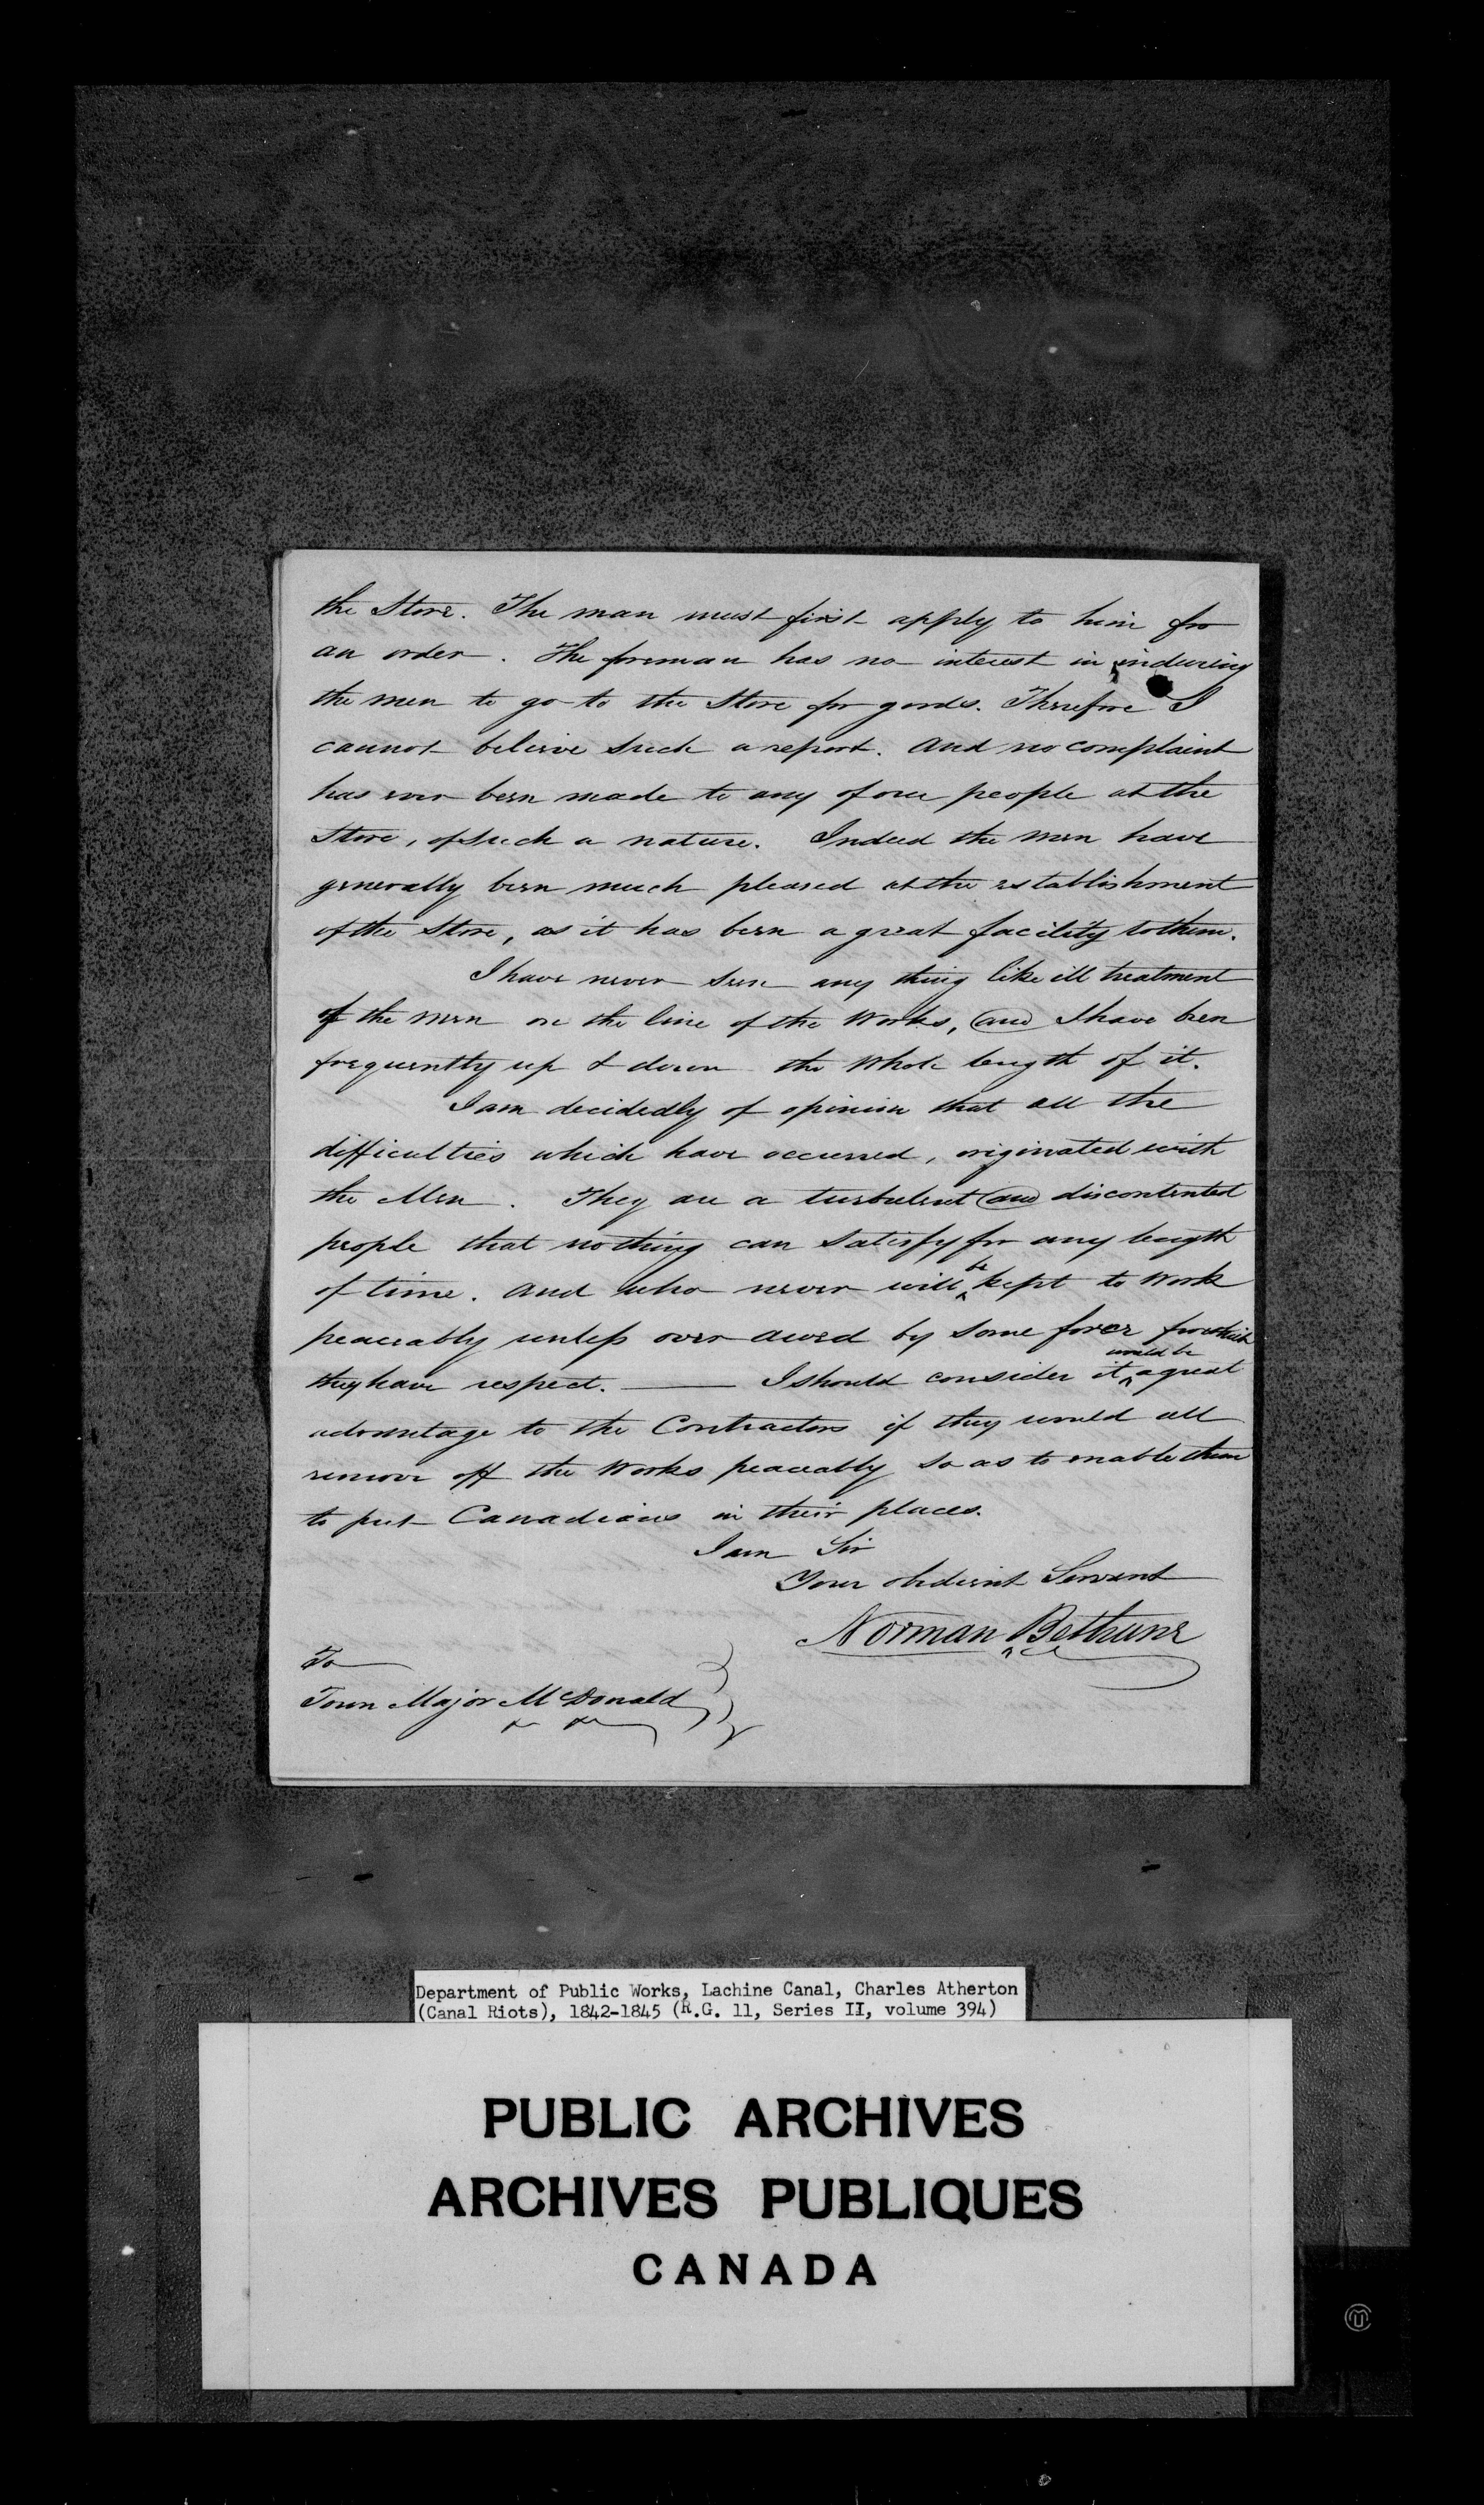 the Store. The man must first apply to him for
an order. The foreman has no interest in inducing
the men to go to the Store for goods. Therefore I
cannot believe such a report. And no complaint
has ever been made to any of our people at the
Store, of such a nature. Indeed the men have
generally been much pleased at the establishment
of the Store, as it has been a great facility to them.
I have never seen any thing like ill treatment
of the men on the line of the Works, and I have been
frequently up & down the whole length of it.
I am decidedly of opinion that all the
difficulties which have occurred, originated with
the Men. They are a turbulent and discontented
people that nothing can satisfy for any length
of time. And who never will be kept to work
peaceably unless over awed by some force for which
they have respect. — I should consider it would be a great
advantage to the Contractors if they would all
remove off the Works peaceably so as to enable them
to put Canadians in their places.
I am Sir
Your obedient Servant
Norman Bethune
To
Town Major McDonald
Department of Public Works, Lachine Canal, Charles Atherton
(Canal Riots), 1842-1845 (R.G. 11, Series II, volume 394)
PUBLIC ARCHIVES
ARCHIVES PUBLIQUES
CANADA